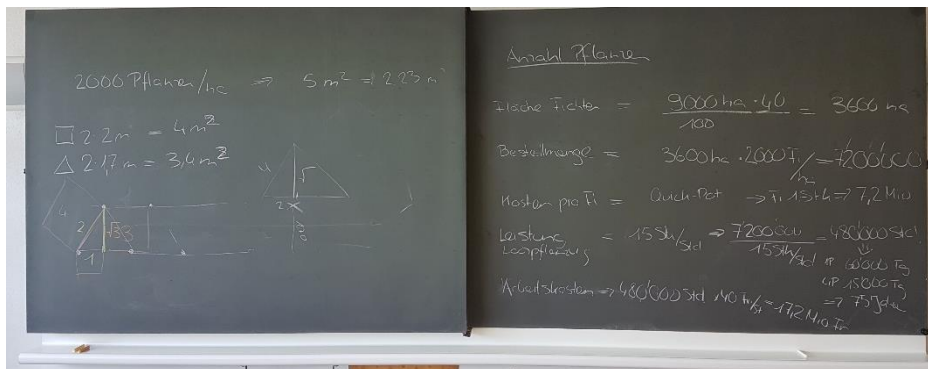 2000 Pflanzen/ha ⇒ 5 m² =
□ 2·2m = 4m²
△ 2·1,7m = 3,4m²
4
2
√3
1
4
2
Anzahl Pflanzen
Fläche Fichten = 9000 ha · 40 / 100 = 3600 ha
Bestellmenge = 3600 ha · 2000 Fi/ha = 7'200'000
Kosten pro Fi = Quick-Pot → 7,2 Mio
Leistung = 15 Stk/Std ⇒ 7200'000 / 15 Stk/Std = 480'000 Std
60'000 Tg
15'000 Tg
⇒ 75 Jahre
Arbeitskosten ⇒ 480'000 Std · 40 Fr/St = 17,2 Mio Fr